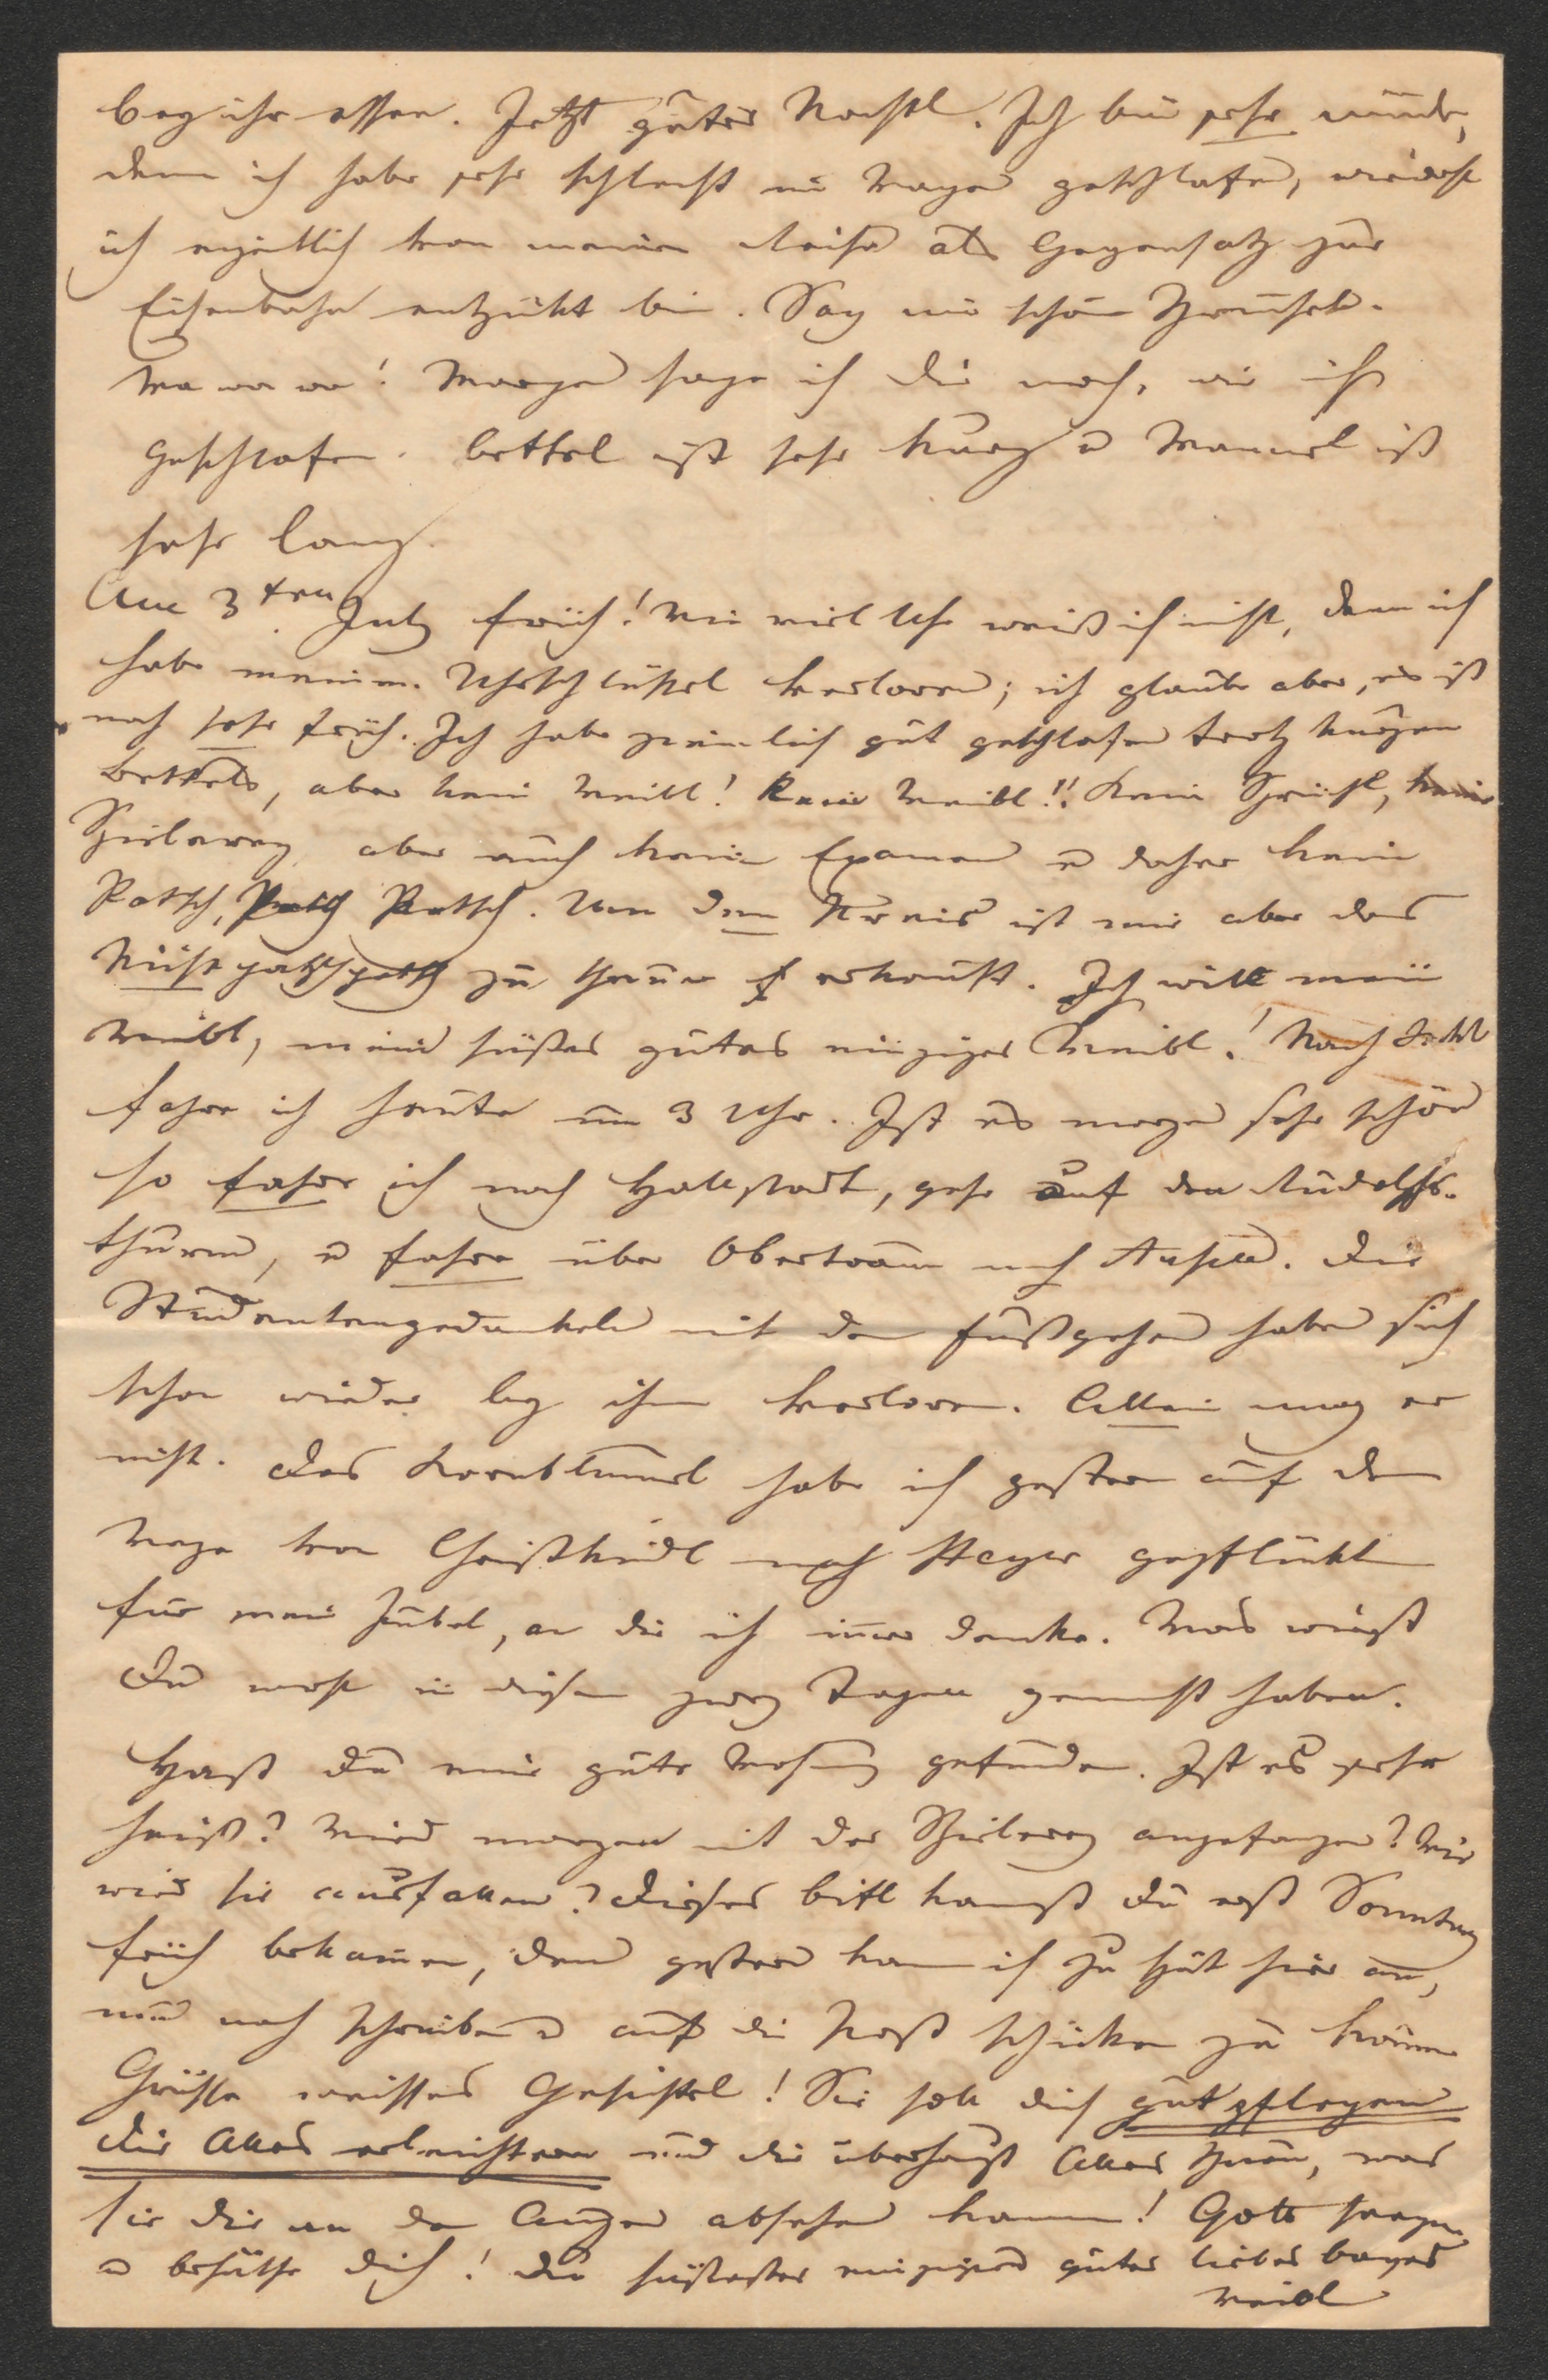 bey ihr essen. Jetzt gute Nachtl. Ich bin sehr müde,
denn ich habe sehr schlecht im Wagen geschlafen, wiewohl
ich eigentlich von meiner Reise als Gegensatz zur
Eisenbahn entzükt bin. Sag mir schön
Morgen sage ich dir noch, wie ich
geschlafen. Bettel ist sehr kurz u Mannerl ist
sehr lang.
Am 3ten July früh! Wie viel Uhr weiß ich nicht, denn ich
habe meinen Uhrschlüssel verloren; ich glaube aber, es ist
noch sehr früh. Ich habe ziemlich gut geschlafen trotz kurzen
Bettels, aber kein Weibl! Kein Weibl!! Kein kein
Spielerey aber auch kein Examen u daher kein
Patsch, Patsch Patsch. Um den Preis ist mir aber das
zu theuer erkauft. Ich will mein
Weibl, mein süßes gutes einziges Weibl! Nach Ischl
fahre ich heute um 3 Uhr. Ist es morgen sehr schön
so fahre ich nach Hallstadt, gehe auf den Rudolphs-
thurm, u fahre über Obertraun nach Aussee. Die
Studentengedanken mit dem Fußgehen haben sich
schon wieder bey ihm verloren. Allein mag er
nicht. Das Kornblümel habe ich gestern auf dem
Wege von nach Steyer gepflückt
für mein Jubel, an die ich immer denke. Was wirst
Du wohl in diesen zwey Tagen gemacht haben.
Hast du eine gute Wohnung gefunden. Ist es sehr
heiß? Wird morgen mit der Spielerey angefangen? Wie
wird sie ausfallen? Dieses kannst du erst Sonntag
früh bekommen, denn gestern kam ich zu spät hier an,
um noch schreiben u auf die Post schicken zu können
Grüsse weisses Gesichtel! Sie soll dich gut pflegen
dir Alles erleichtern und dir überhaupt Alles thun, was
sie dir an den Augen absehen kann! Gott segne
u behüthe dich! Du süßestes einziges gutes liebes braves
Weibl